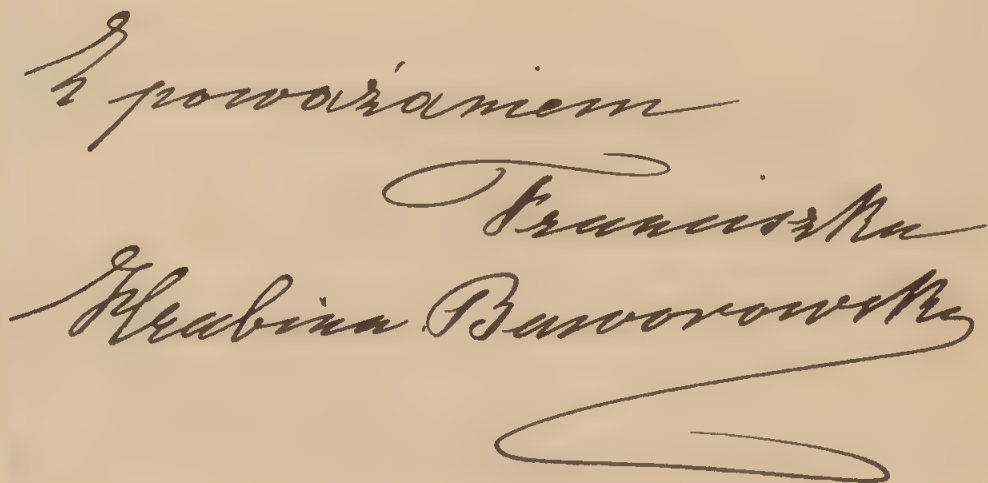 Z poważaniem
Franciszka
Hrabina Baworowska